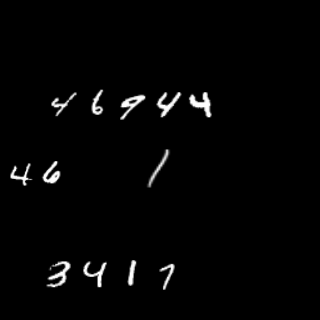 46944
46 1
3417